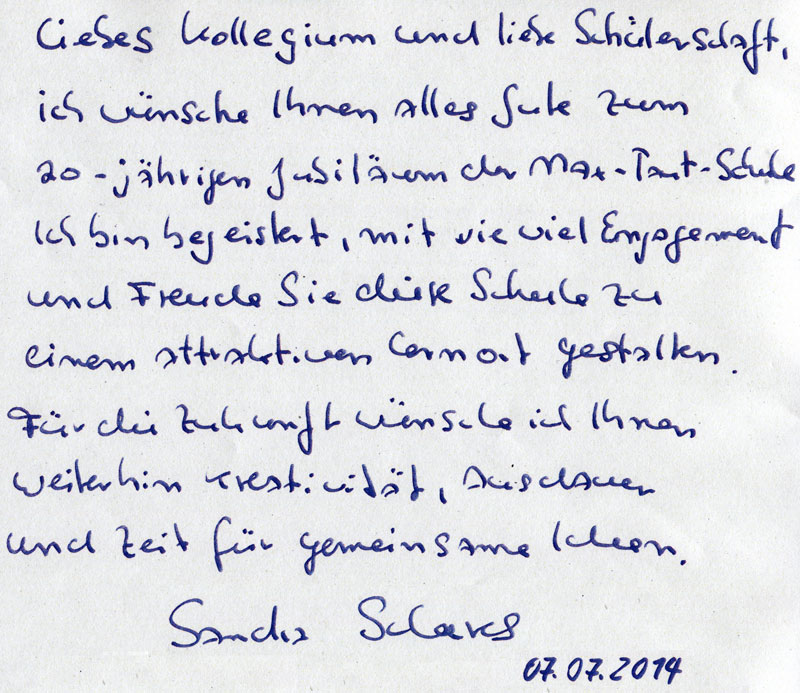 Liebes Kollegium und liebe Schülerschaft,
ich wünsche Ihnen alles Gute zum
20-jährigen Jubiläum der Max-Taut-Schule
Ich bin begeistert, mit wie viel Engagement
und Freude Sie diese Schule zu
einem attraktiven Lernort gestalten.
Für die Zukunft wünsche ich Ihnen
weiterhin Kreativität, Ausdauer
und Zeit für gemeinsame Ideen.
Sandra Scheeres
07.07.2014